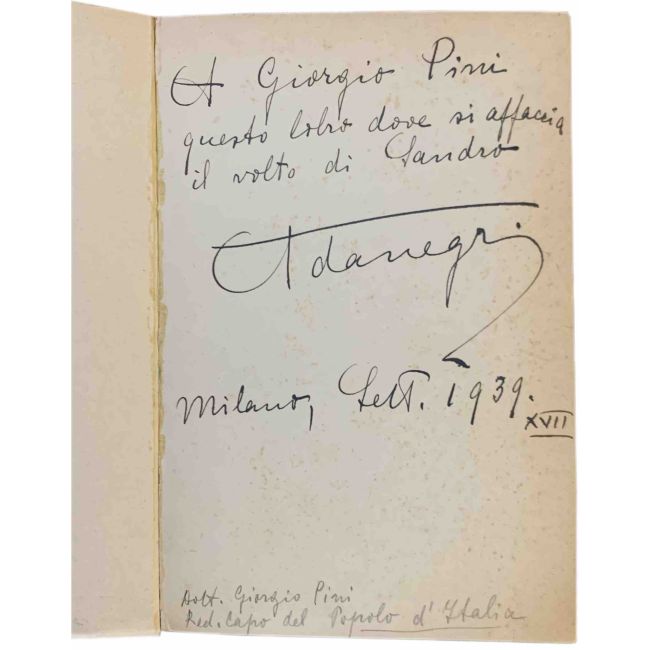 A Giorgio Pini
questo libro dove si affaccia
il volto di Sandro
Adanegri
Milano, Sett. 1939.
XVII
Dott. Giorgio Pini
Red. Capo del Popolo d'Italia